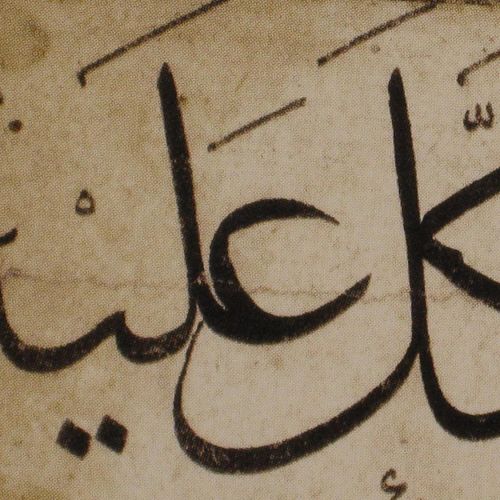 كَّلَ عَلَيْـ